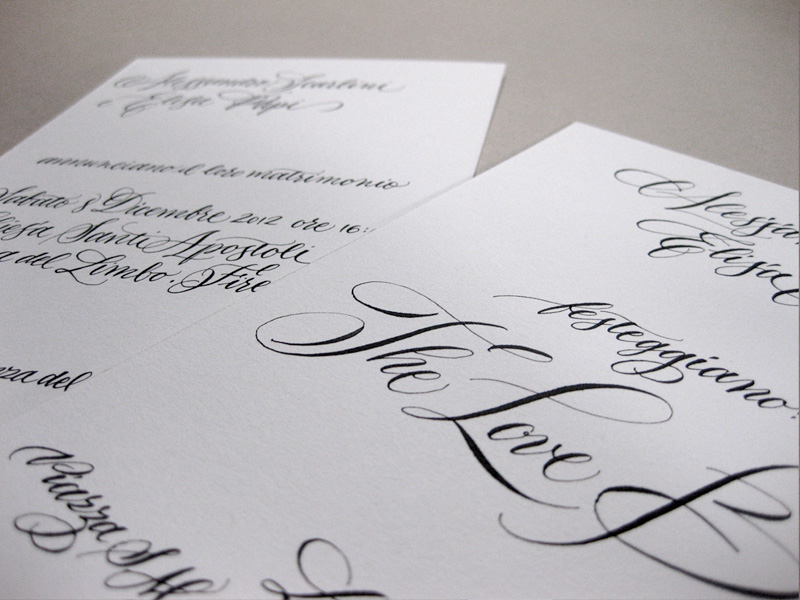 Alessandro Scarlini
e Elisa Volpi
annunciano il loro matrimonio
Sabato 8 Dicembre 2012 ore 16:
Chiesa Santi Apostoli
del Limbo. Fire
del
Piazza S. M
Alessan
Elisa
festeggiano
The
Love